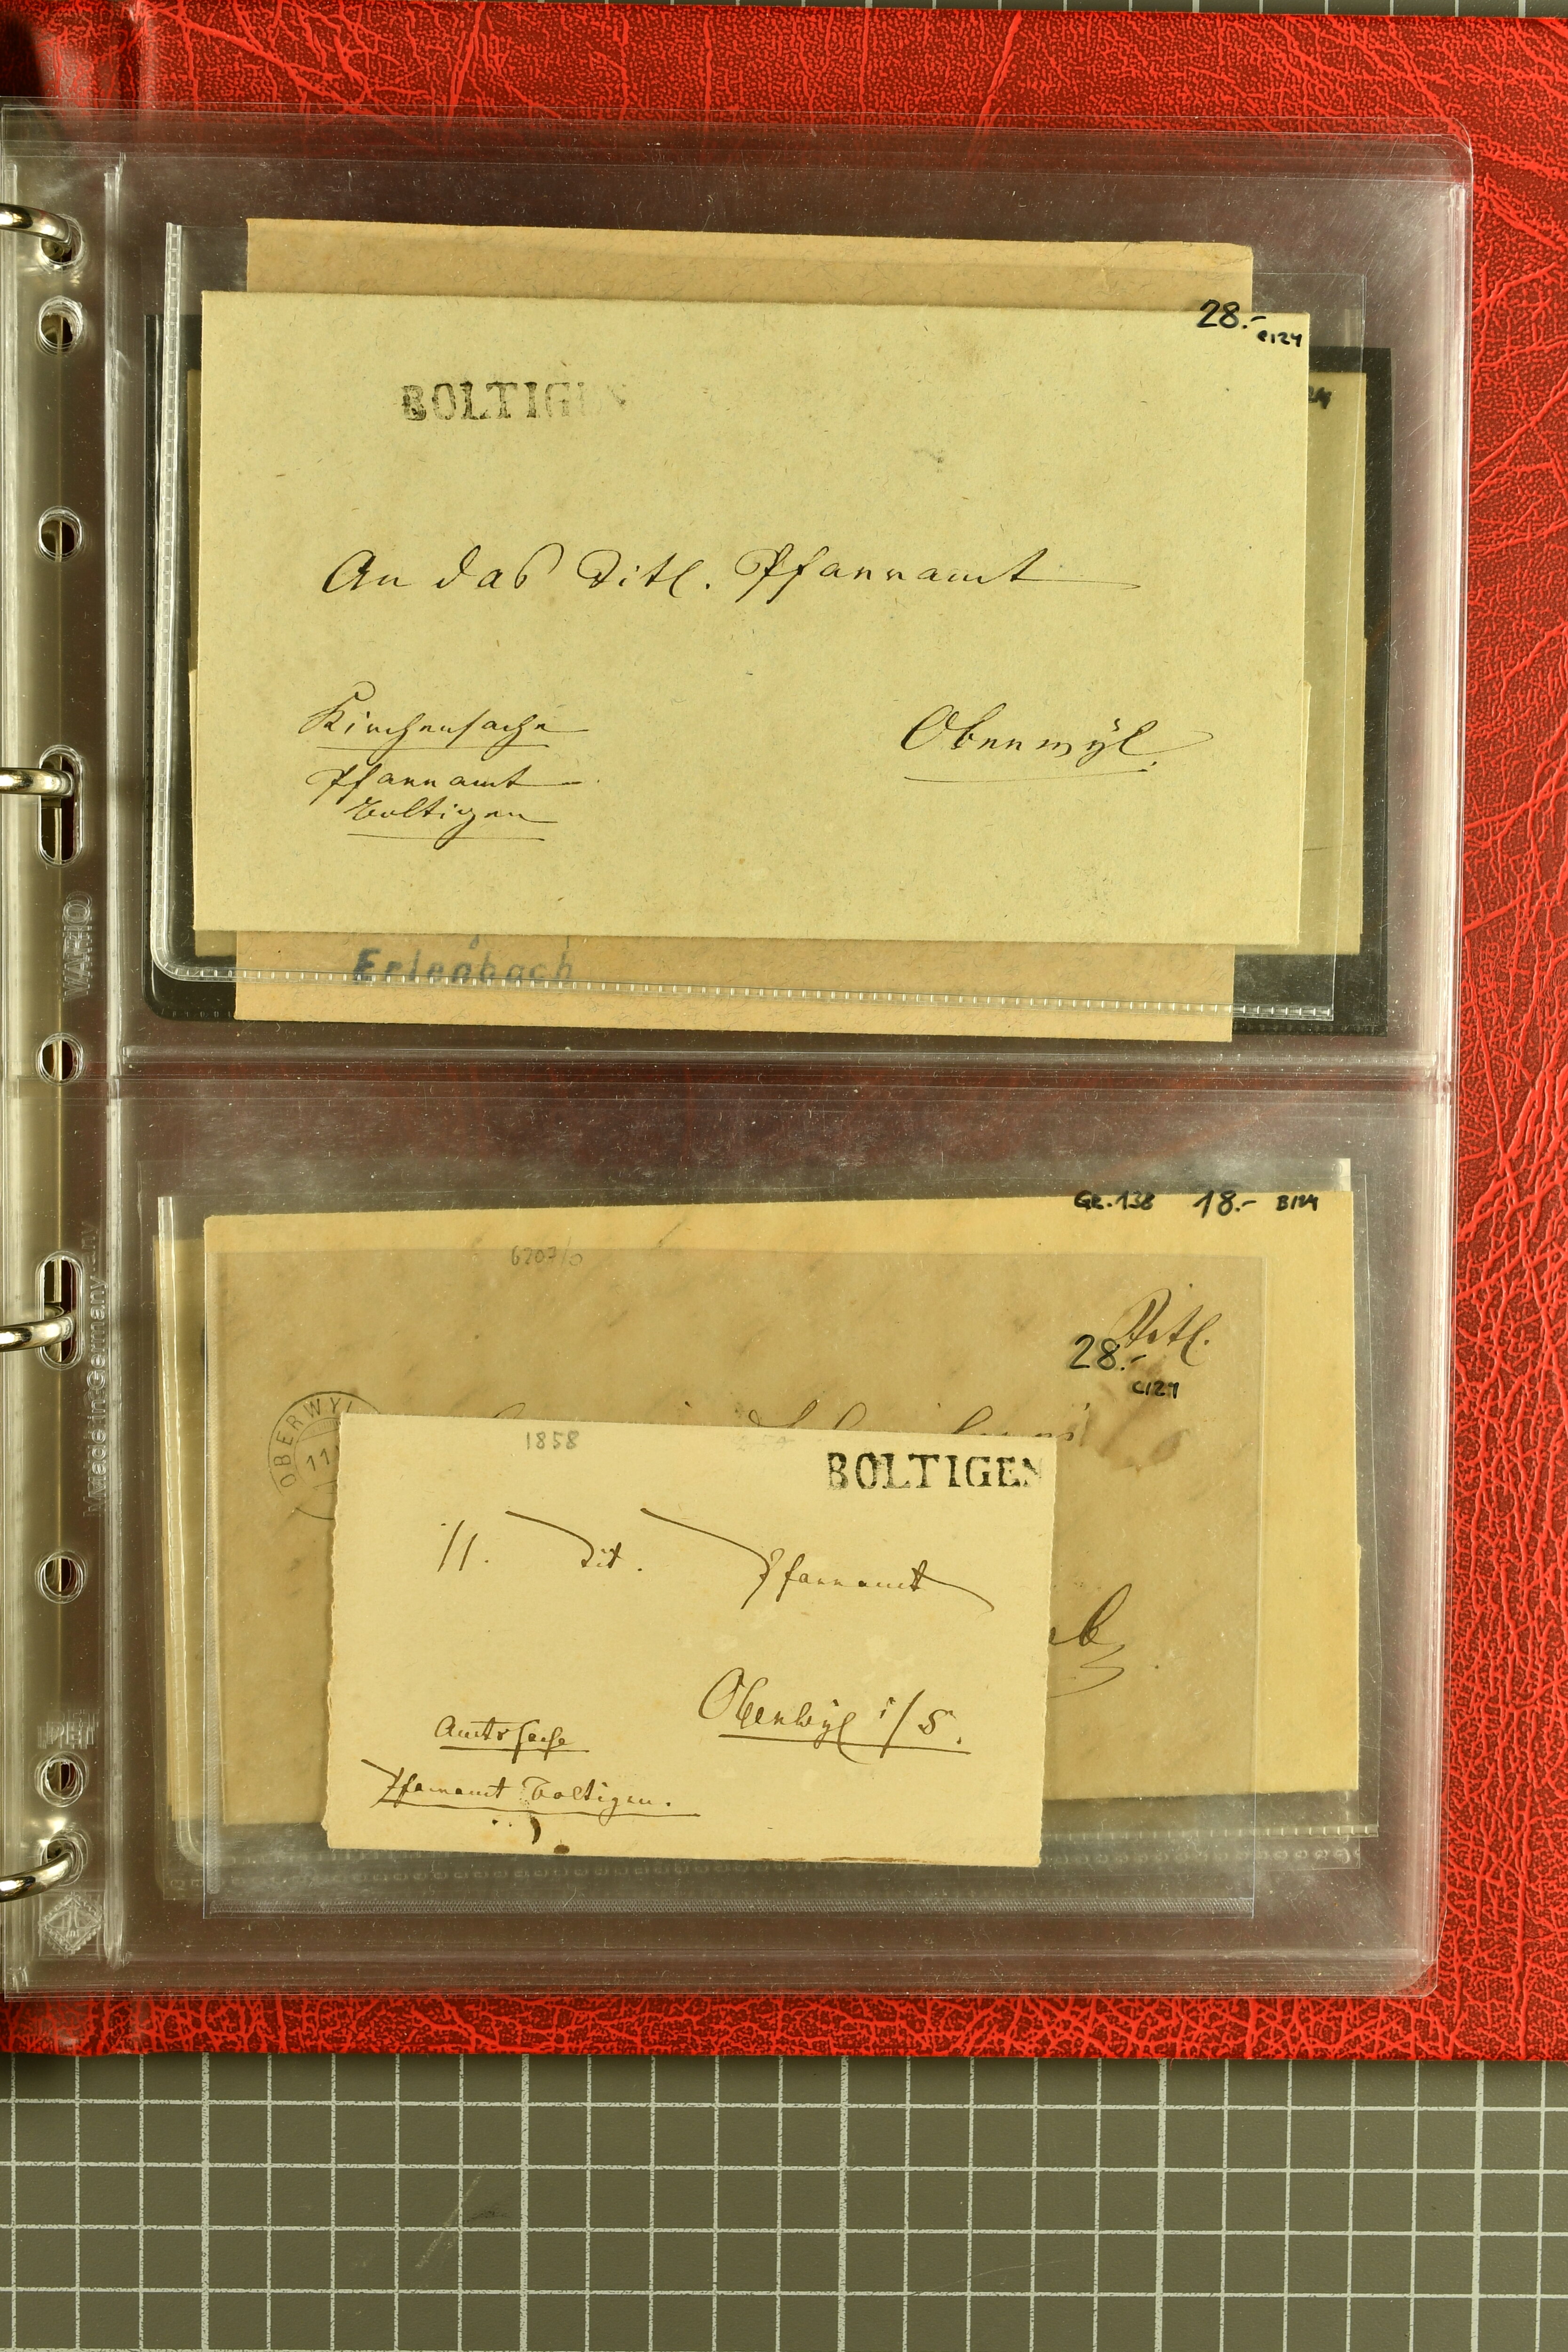 28.-
C124
BOLTIGEN
An das Titl. Pfarramt
Kirchensache
Pfarramt
Boltigen
Oberwÿl.
Erlenbach
VARIO
Made in Germany
GR.138 18.- B124
6207/0
Titl.
28.-
C124
OBERWYL
11
1858
BOLTIGEN
Tit. Pfarramt
Oberwÿl i/S.
Amtssache
Pfarramt Boltigen.